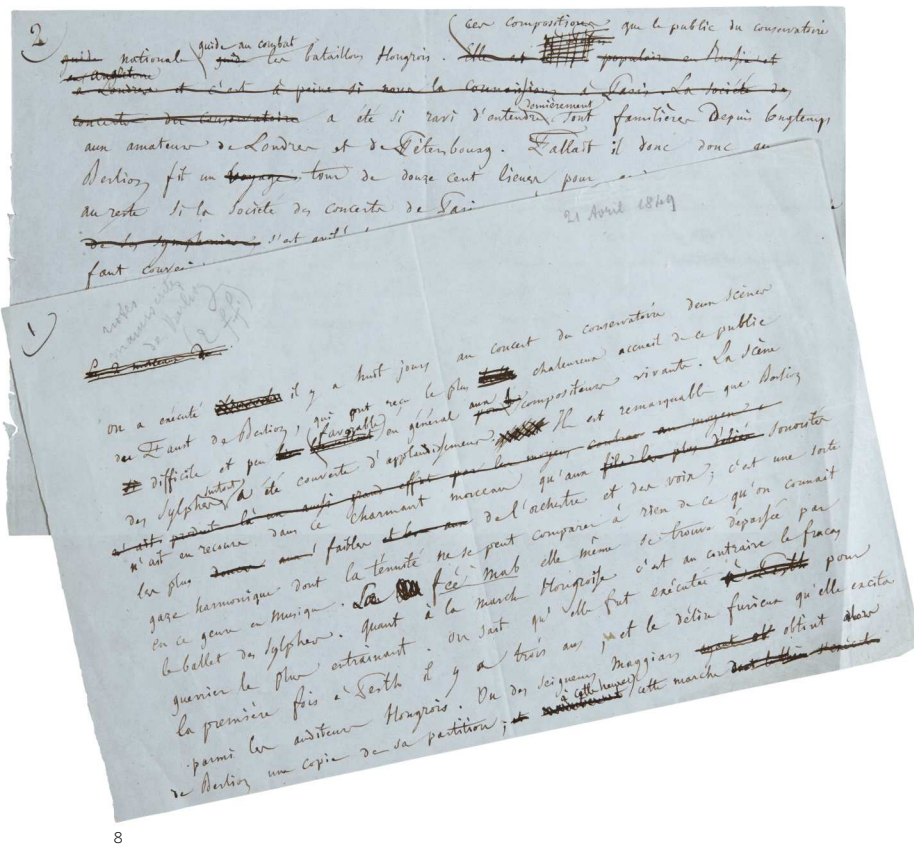 2
ces compositions que le public du conservatoire
guide nationale guide au combat guide les bataillons Hongrois. Elle est populaire en Russie et
en Angleterre
a Londres et c'est à peine si nous la connaissions à Paris. La Société des
concerts du conservatoire a été si ravi d'entendre dernièrement sont familières depuis longtemps
aux amateurs de Londres et de Pétersbourg. Fallait il donc donc que
Berlioz fit un voyage tour de douze cent lieues pour
au reste si la société des concerts de Pari
de les symphonies s'est
faut
21 Avril 1849
1
notes
manuscrites
de Berlioz
on a exécuté il y a huit jours au concert du conservatoire deux scènes
du Faust de Berlioz, qui ont reçu le plus chaleureux accueil de ce public
difficile et peu favorable en général aux compositeurs vivants. La scène
des Sylphes surtout a été couverte d'applaudissemens Il est remarquable que Berlioz
ait produit là un aussi grand effet par les moyens
n'ait eu recours dans ce charmant morceau qu'aux plus sonorités
les plus douces faibles de l'orchestre et des voix; c'est une sorte
gaze harmonique dont la ténuité ne se peut comparer à rien de ce qu'on connait
en ce genre en musique. La fée Mab elle même se trouve dépassée par
le ballet des Sylphes. quant à la marche Hongroise c'est au contraire le fracas
guerrier le plus entrainant. on sait qu'elle fut exécutée à Pesth pour
la première fois à Pesth il y a trois ans, et le délire furieux qu'elle excita
parmi les auditeurs Hongrois. Un des seigneurs Maggiars obtint alors
de Berlioz une copie de sa partition; et à cette heure cette marche
8